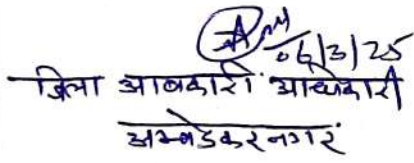 06/3/25
जिला आबकारी अधिकारी
अम्बेडकरनगर